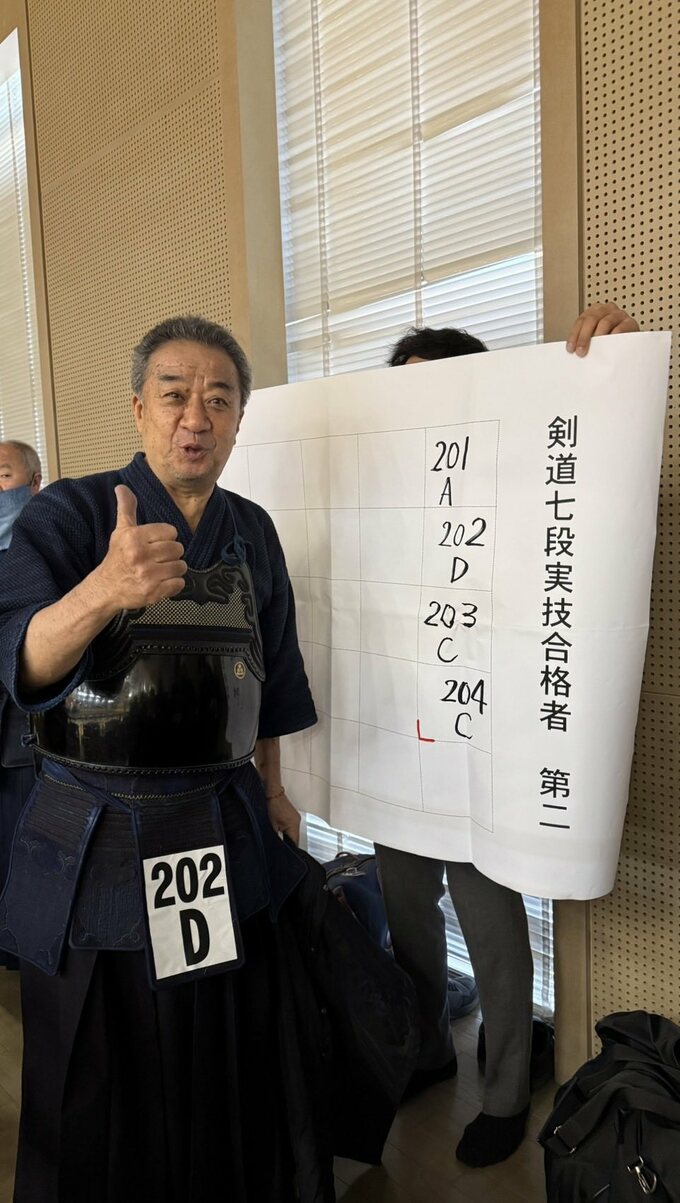 剣道七段実技合格者　第二
201
A
202
D
203
C
204
C
202
D